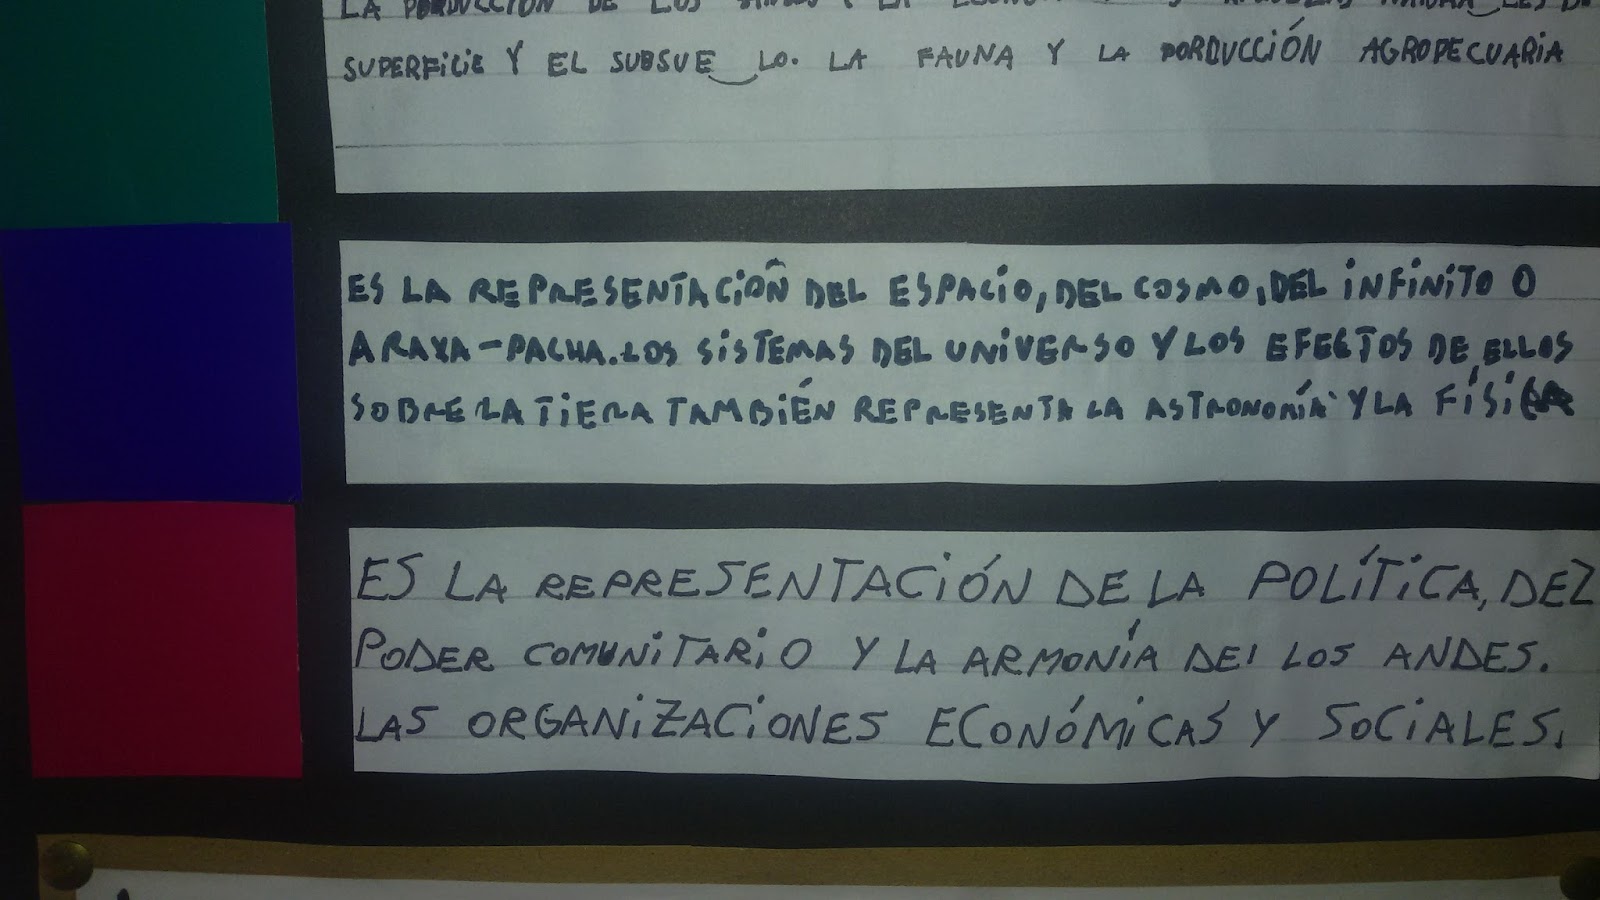 LA PORDUCCIÓN DE LOS Y LA
SUPERFICIE Y EL SUBSUELO. LA FAUNA Y LA PORDUCCIÓN AGROPECUARIA
ES LA REPRESENTACIÓN DEL ESPACIO, DEL COSMO, DEL INFINITO O
ARAXA-PACHA. LOS SISTEMAS DEL UNIVERSO Y LOS EFECTOS DE ELLOS
SOBRE LA TIERA TAMBIÉN REPRESENTA LA ASTRONOMÍA Y LA FÍSICA
ES LA REPRESENTACIÓN DE LA POLÍTICA, DEL
PODER COMUNITARIO Y LA ARMONÍA DE LOS ANDES.
LAS ORGANIZACIONES ECONÓMICAS Y SOCIALES.